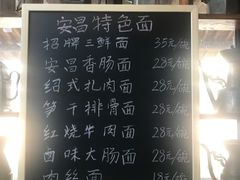 安昌特色面
招牌三鲜面 35元/碗
安昌香肠面 28元/碗
绍式扎肉面 28元/碗
笋干排骨面 28元/碗
红烧牛肉面 28元/碗
卤味大肠面 28元/碗
肉丝面 18元/碗